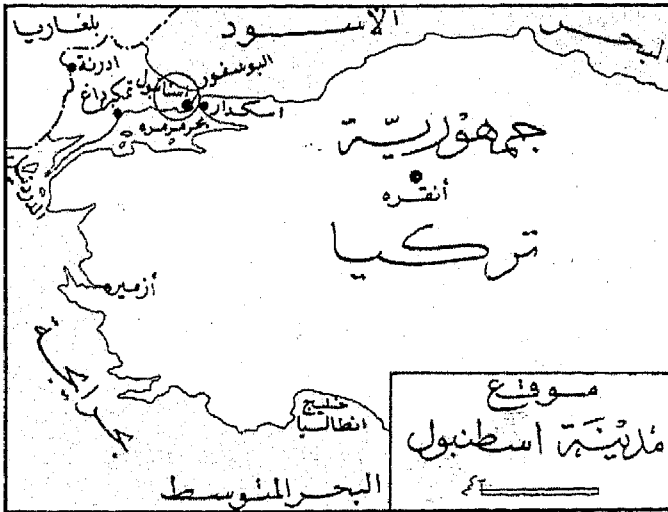 البحر الاسود
بلغاريا
ادرنة
البوسفور
استانبول
تمكرداغ
اسكدار
بحر مرمره
الدردنيل
جمهوريّة
أنقره
تركيا
أزميره
بحر إيجه
خليج
انطاليا
البحر المتوسط
موقع
مدينة اسطنبول